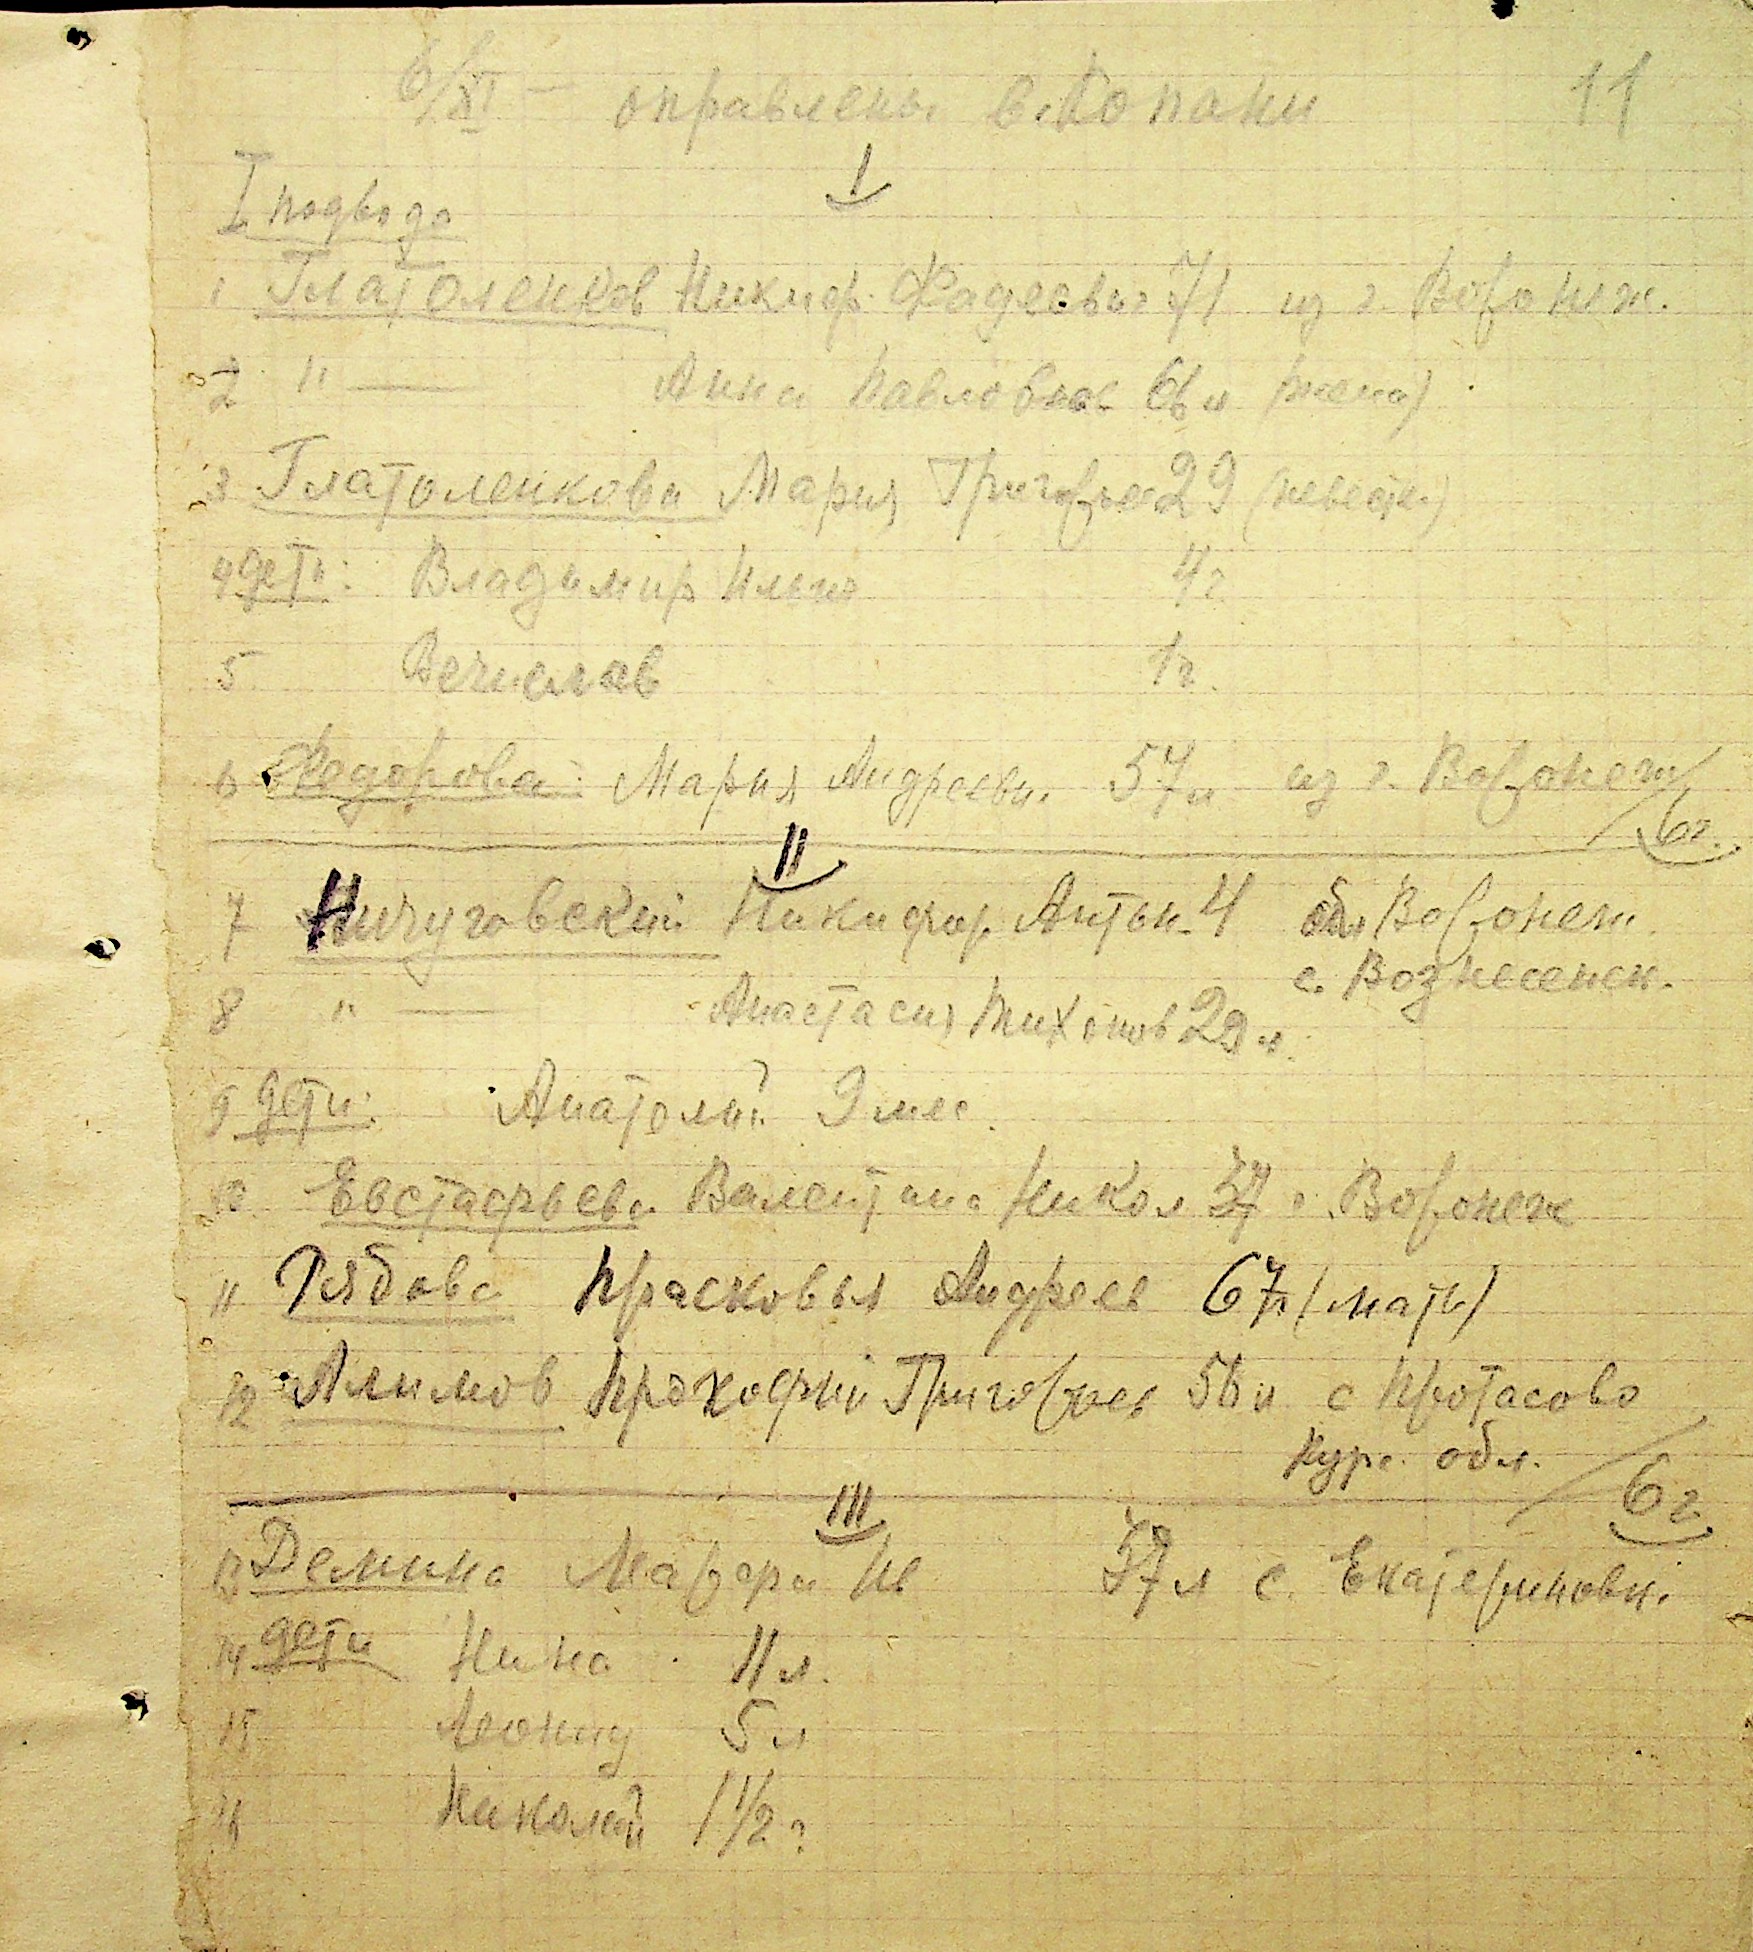 6/XI — оправлены в. Копани 11
I
I подвода
1 Глатоленков Никиф. Фадеевич 71 из г. Воронеж.
2 " — Анна Павловна (жена)
3 Глатоленкова Мария Григорье 29 (невестк.)
4 дети: Владимир Ильич 4 г
5 Вечислав 1 г.
6 Федорова Мария Андреевн. 57 л из г. Воронеж
6 г.
II
7 Ничуговский Никифор Антон. 4 обл Воронеж.
с. Вознесенск.
8 " — Анастасия Тихонов 29 л.
9 дети: Анатолий 9 мес.
10 Евстафьева Валентина Никол 37 г. Воронеж
11 Рябова Прасковья Андреев 67 л (мать)
12 Алимов Прокофий Григорьев 56 л с Протасово
Курс. обл.
6 г.
III
13 Демина Ив 37 л с. Екатериновк.
14 дети Нина 11 л.
15 Леонид 5 л
16 Николай 1 1/2 г